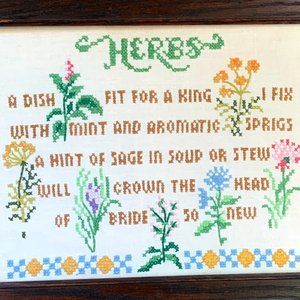 HERBS
A DISH FIT FOR A KING I FIX
WITH MINT AND AROMATIC SPRIGS
A HINT OF SAGE IN SOUP OR STEW
WILL CROWN THE HEAD
OF BRIDE SO NEW